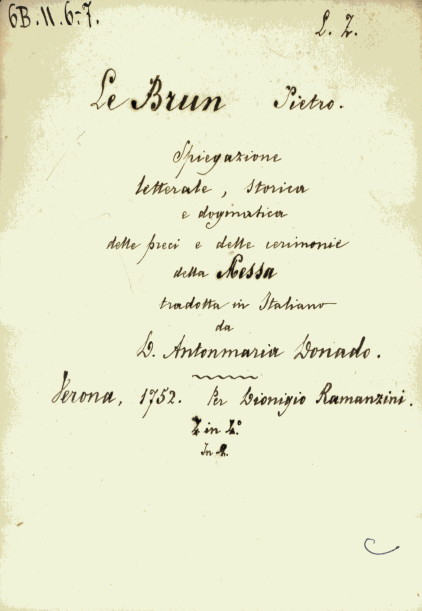 6B.11.6-7.
L. Z.
Le Brun Pietro.
Spiegazione
letterale, storica
e dogmatica
delle preci e delle cerimonie
della Messa
tradotta in Italiano
da
D. Antonmaria Donado.
Verona, 1752. Per Dionigio Ramanzini.
in 4.°
In